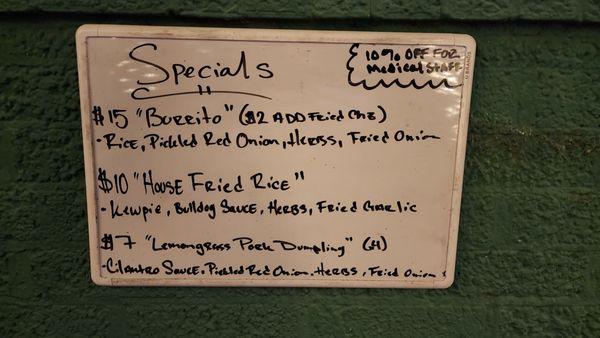 Specials
10% OFF FOR
Medical STAFF
$15 "Burrito" ($2 ADD Fried Chz)
- Rice, Pickled Red Onion, Herbs, Fried Onion
$10 "House Fried Rice"
- Kewpie, Bulldog Sauce, Herbs, Fried Garlic
$7 "Lemongrass Pork Dumpling" (4)
- Cilantro Sauce, Pickled Red Onion, Herbs, Fried Onion